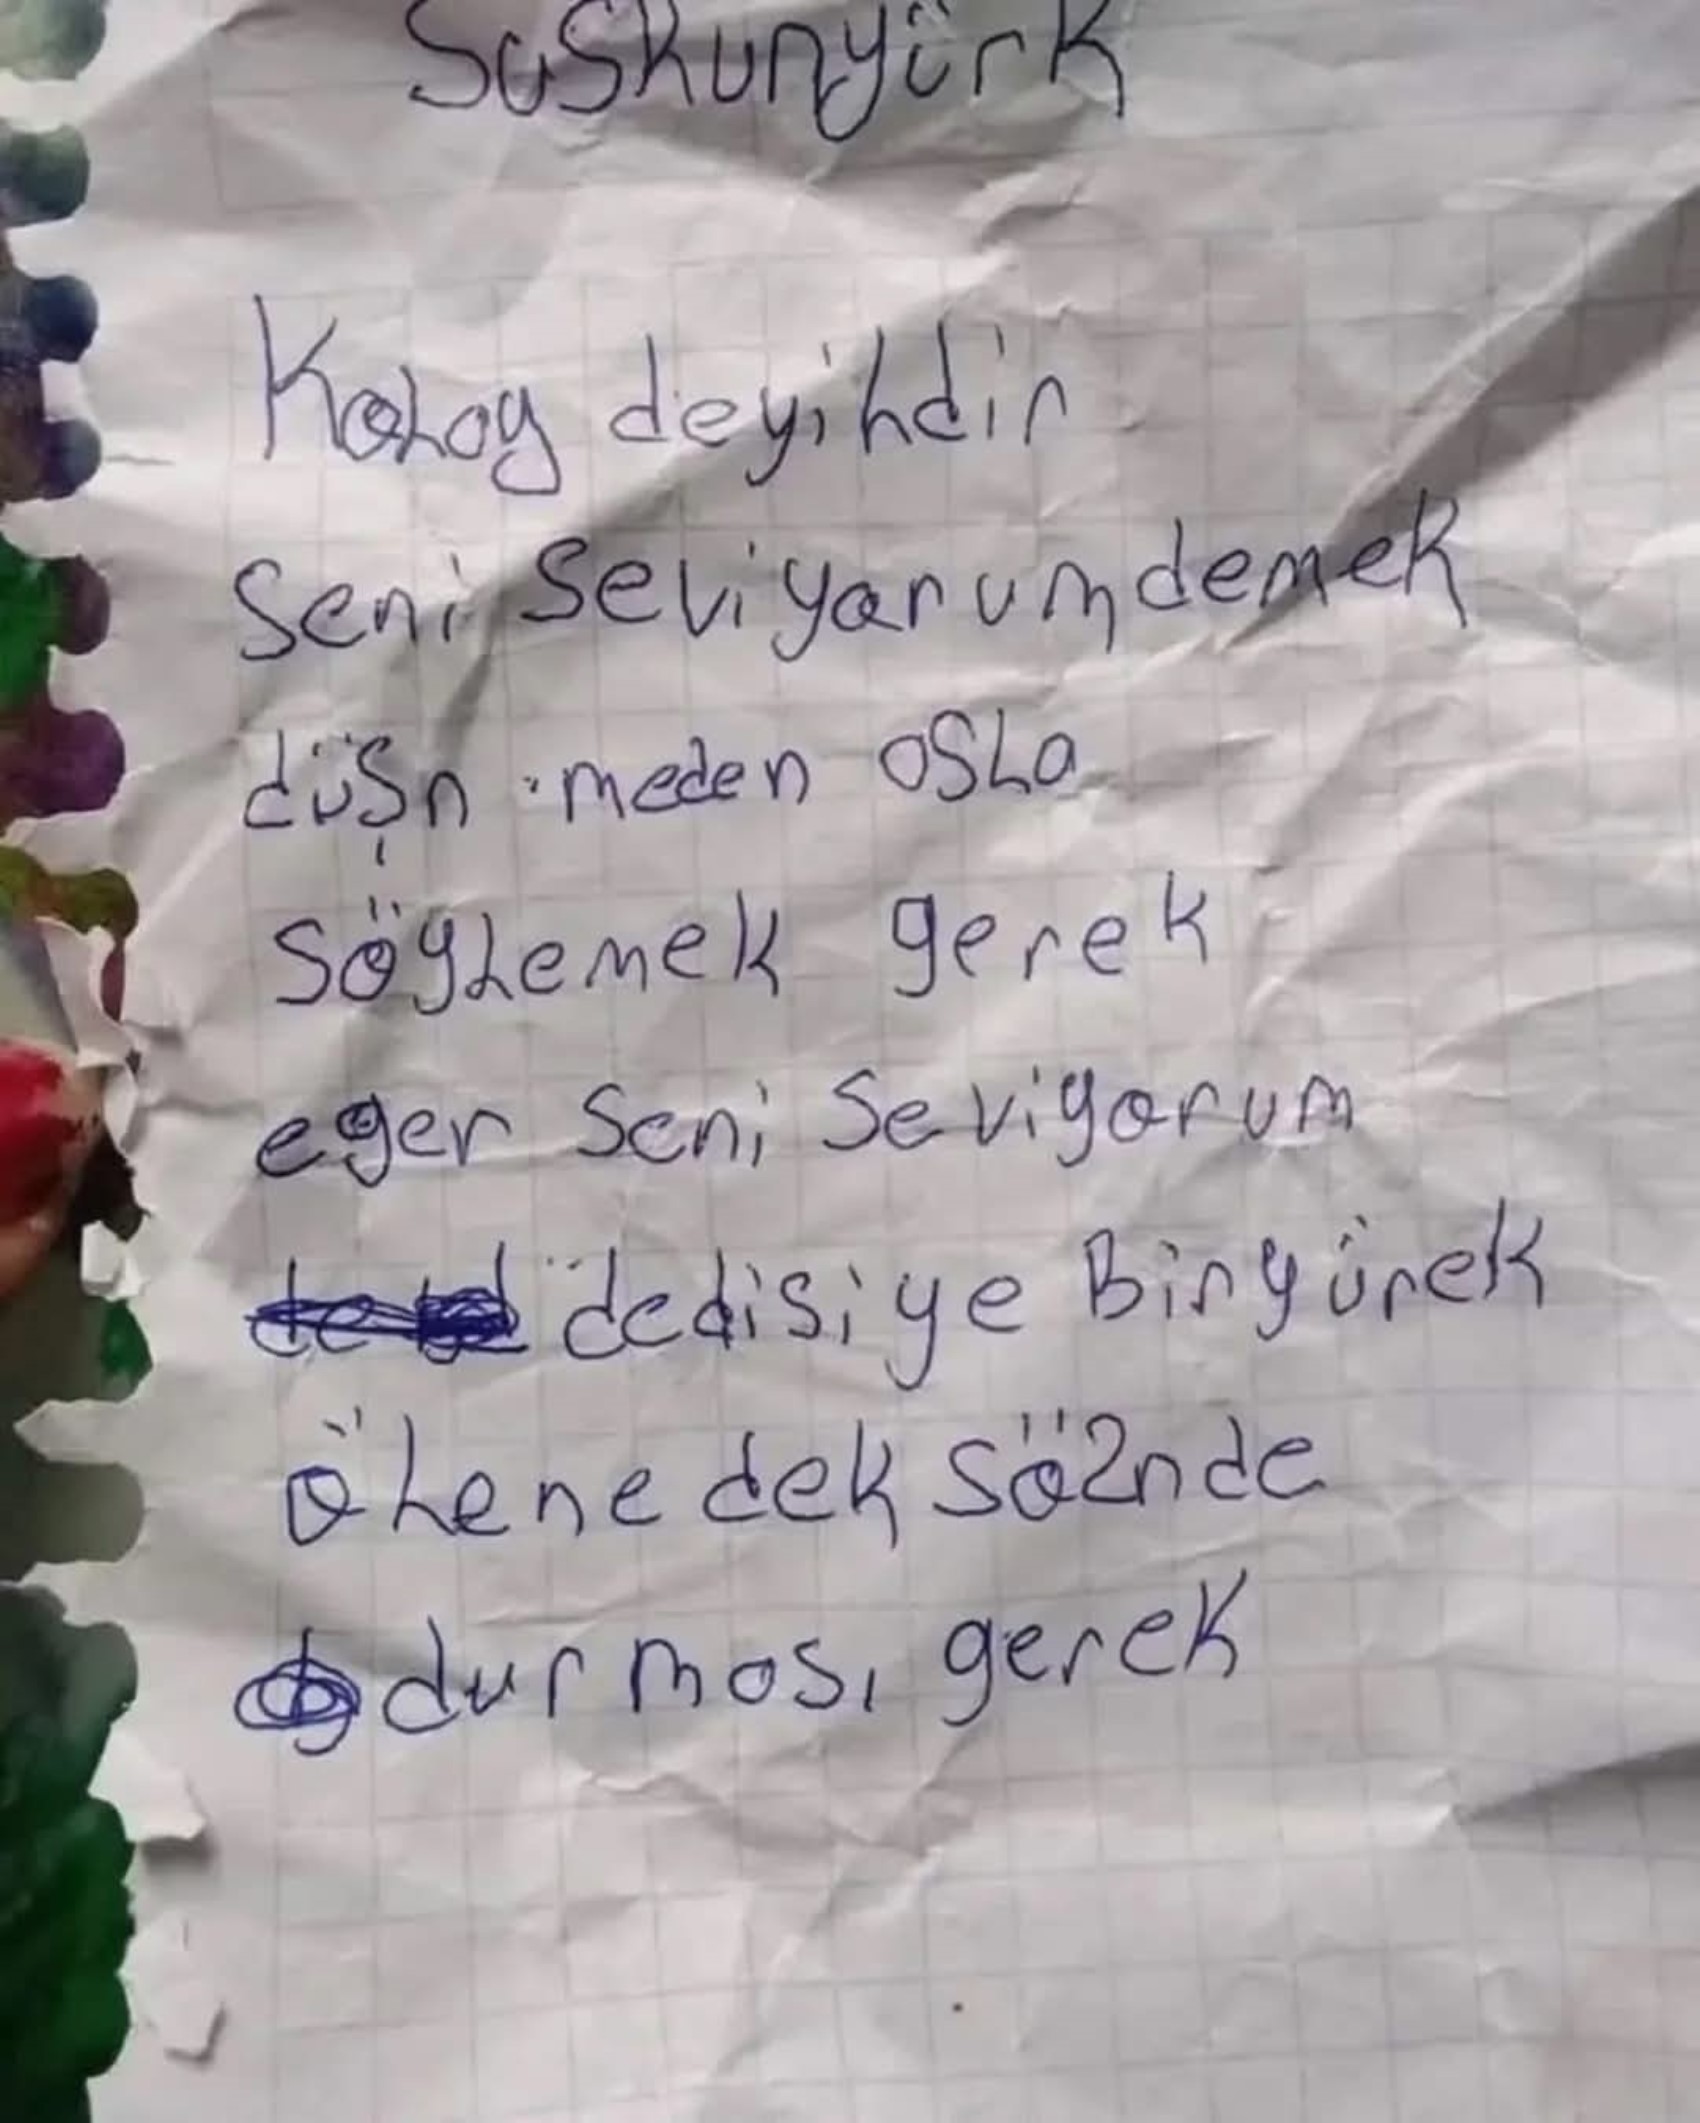 Suskunyürk
Kolay deyildir
Seni Seviyorumdemek
düşn meden osla
Söylemek gerek
eger Seni Seviyorum
dedisiye Biryürek
ölene dek söznde
durması gerek